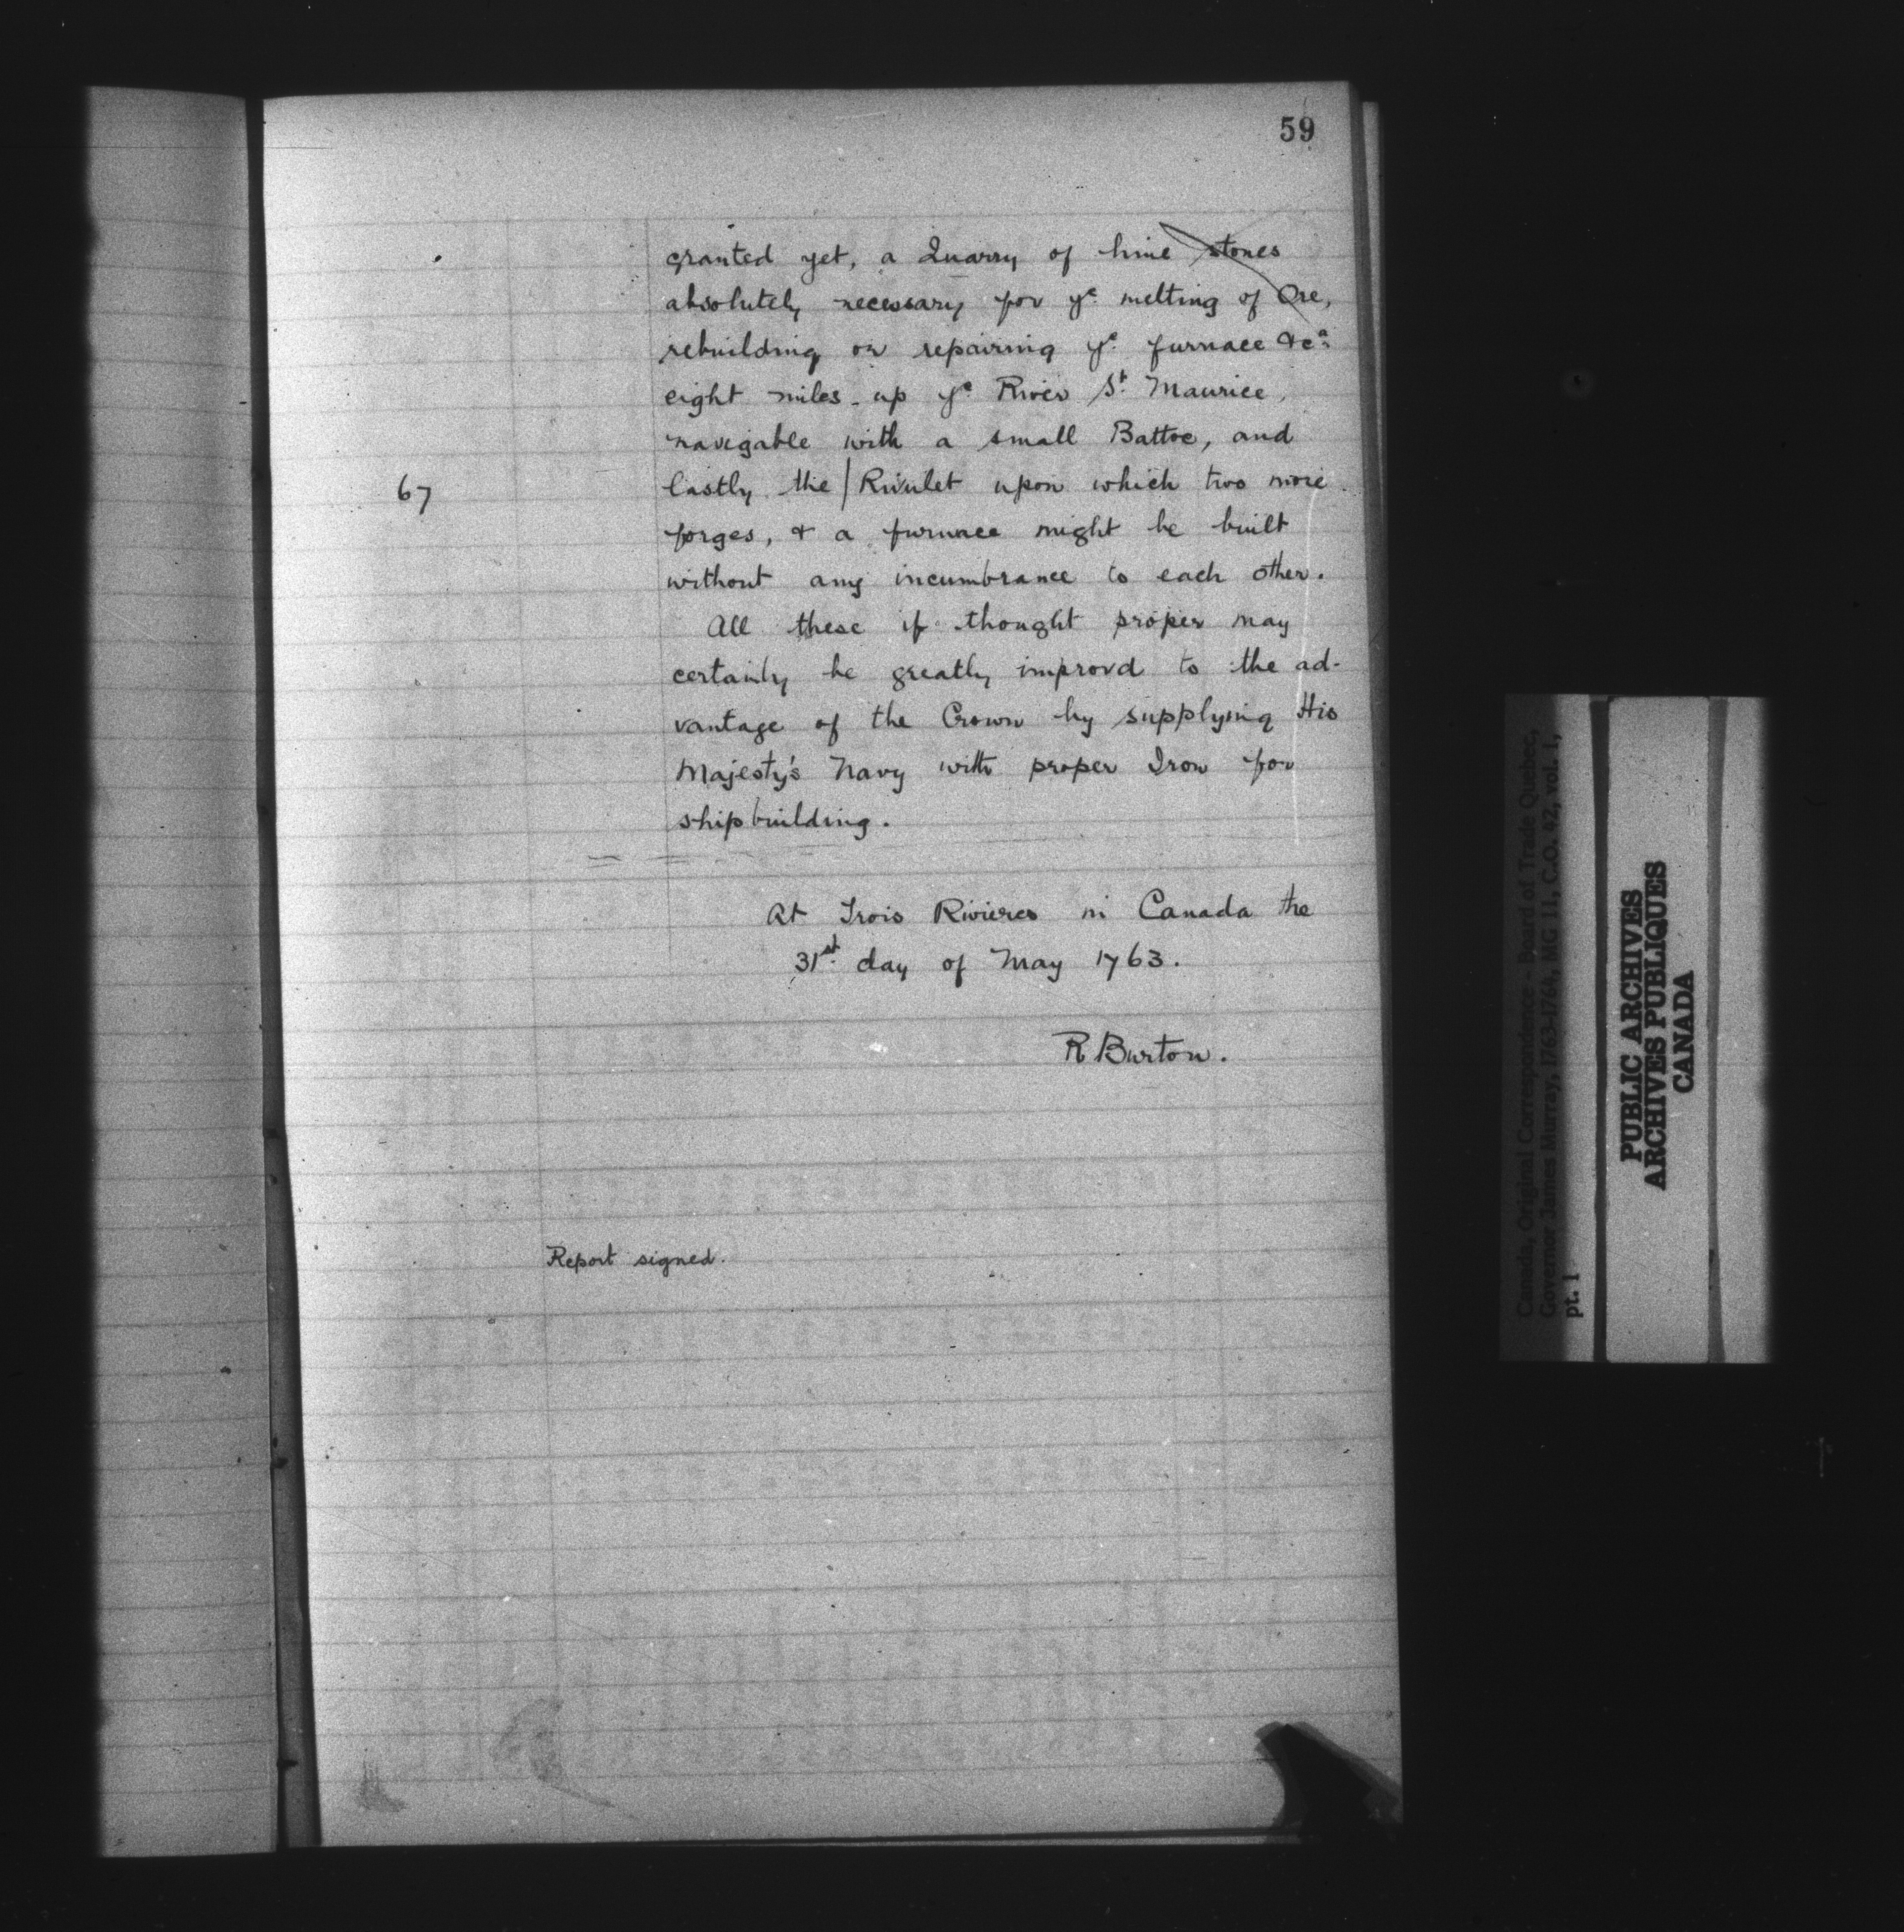 59
granted yet, a Quarry of lime stones
absolutely necessary for yᵉ melting of Ore,
rebuilding or repairing yᵉ furnace &cᵃ
eight miles up yᵉ River Sᵗ Maurice,
navigable with a small Battoe, and
67
lastly the / Rivulet upon which two more
forges, & a furnace might be built
without any incumbrance to each other.
All these if thought proper may
certainly be greatly improvd to the ad-
vantage of the Crown by supplying His
Majesty's Navy with proper Iron for
shipbuilding.
At Trois Rivieres in Canada the
31st day of May 1763.
R Burton.
Report signed.
Canada, Original Correspondence - Board of Trade Quebec,
Governor James Murray, 1763-1764, MG 11, C.O. 42, vol. 1,
pt. 1
PUBLIC ARCHIVES
ARCHIVES PUBLIQUES
CANADA